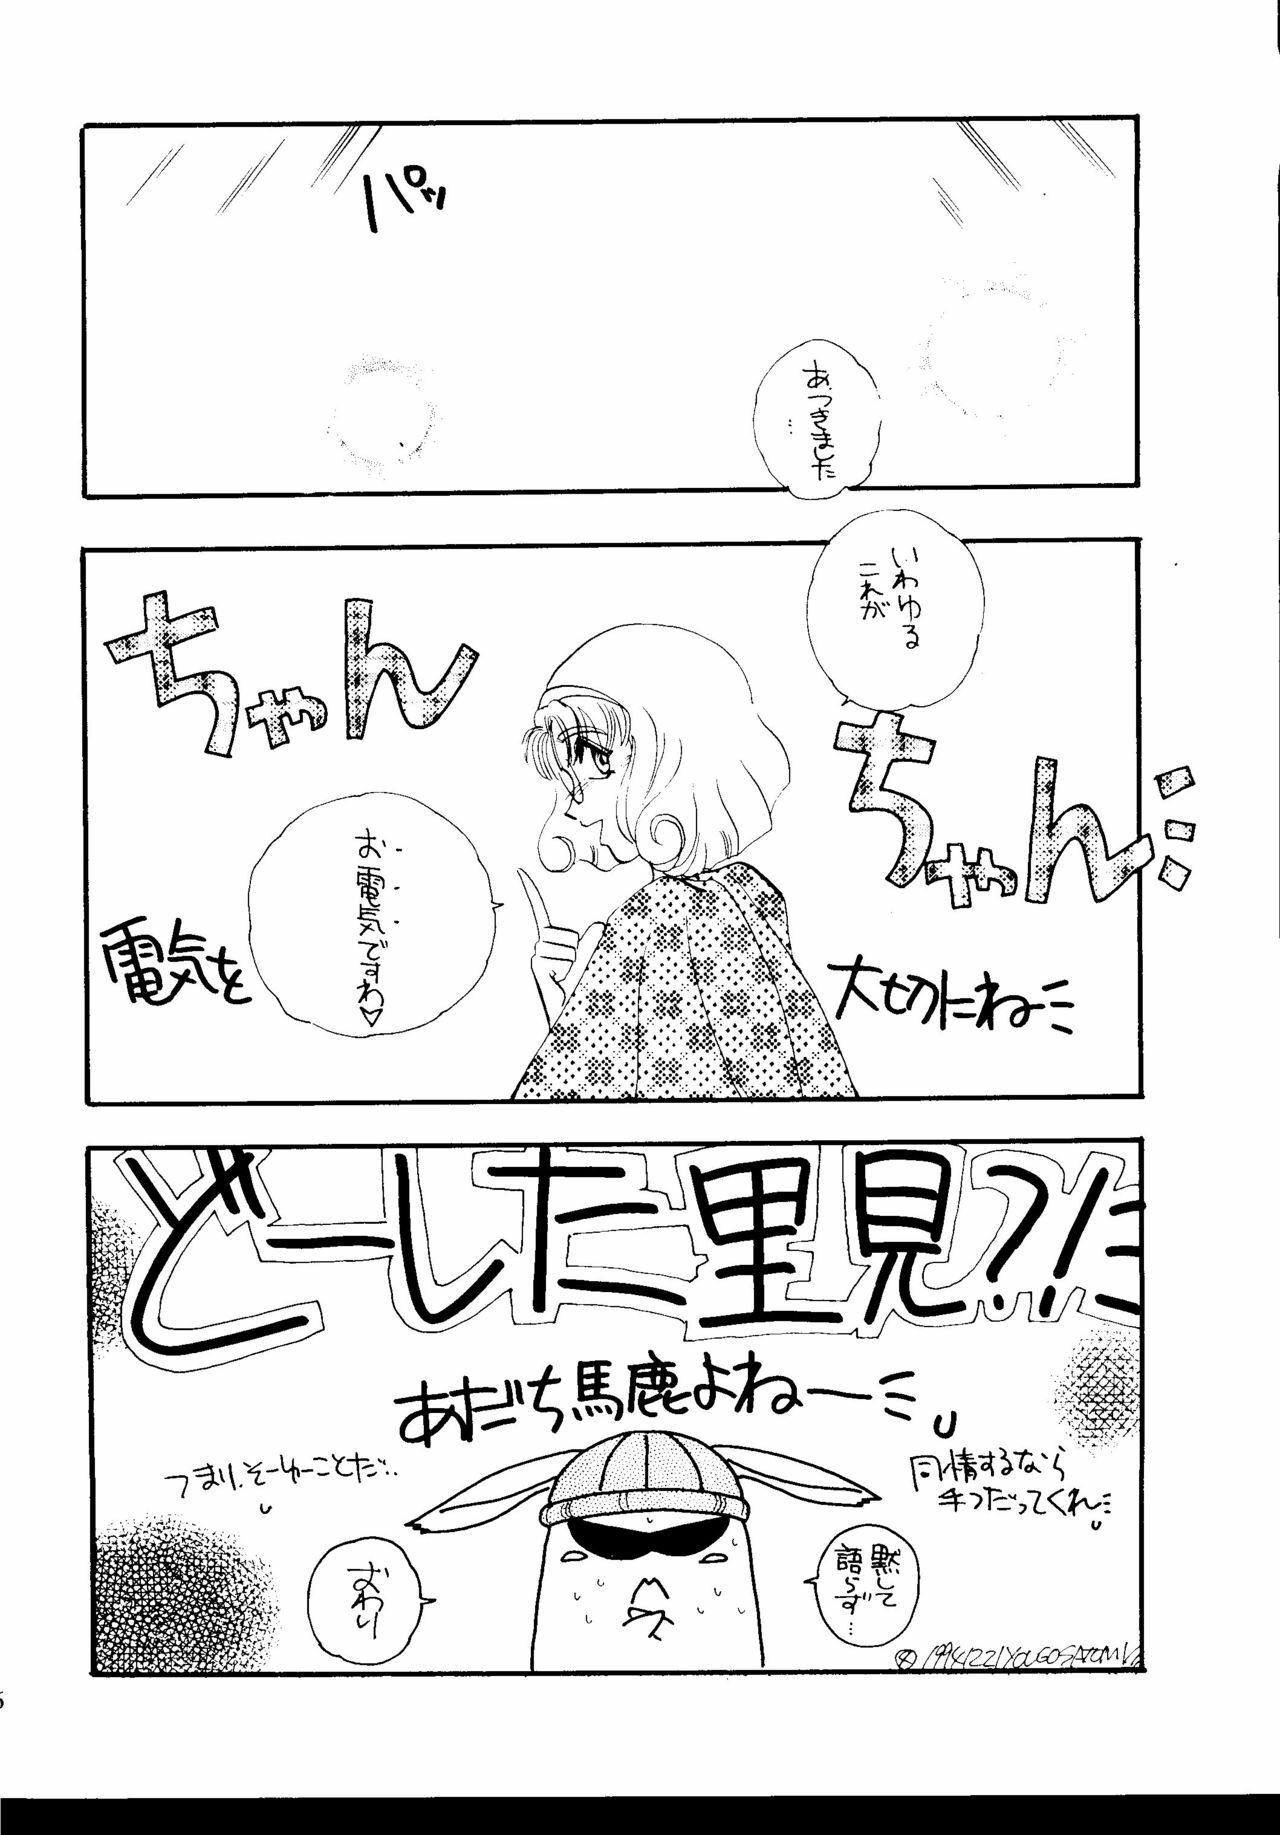 パッ
あ、つきました…
いわゆる
これが
ちゃん
ちゃん
お電気ですわ♡
電気を
大切にねー
どーした里見?!た
あだち馬鹿よねー
つまり、そーゆーことだ…
同情するなら
手つだってくれ
黙して
語らず…
おわり